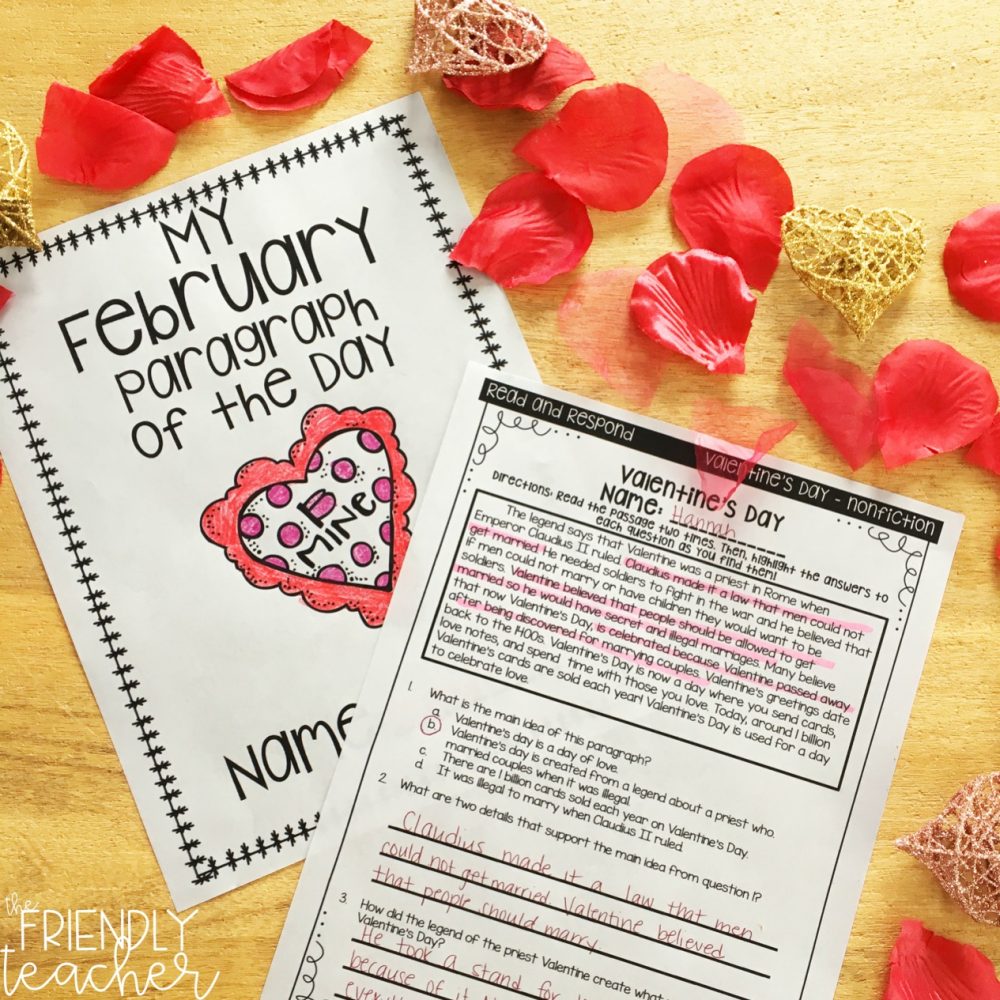 MY
February
Paragraph
of the Day
B
MINE
Name
Read and Respond
Valentine's Day - Nonfiction
Valentine's Day
Name: Hannah
Directions: Read the passage two times. Then, highlight the answers to
each question as you find them!
The legend says that Valentine was a priest in Rome when
Emperor Claudius II ruled. Claudius made it a law that men could not
get married. He needed soldiers to fight in the war and he believed that
if men could not marry or have children they would want to be
soldiers. Valentine believed that people should be allowed to get
married so he would have secret and illegal marriages. Many believe
that now Valentine's Day, is celebrated because Valentine passed away
after being discovered for marrying couples. Valentine's greetings date
back to the 1400s. Valentine's Day is now a day where you send cards,
love notes, and spend time with those you love. Today, around 1 billion
Valentine's cards are sold each year! Valentine's Day is used for a day
to celebrate love.
1. What is the main idea of this paragraph?
a. Valentine's day is a day of love.
b. Valentine's day is created from a legend about a priest who
married couples when it was illegal.
c. There are 1 billion cards sold each year on Valentine's Day.
d. It was illegal to marry when Claudius II ruled.
2. What are two details that support the main idea from question 1?
Claudius made it a law that men
could not get married. Valentine believed
that people should marry
3. How did the legend of the priest Valentine create what
Valentine's Day?
He took a stand for
because of it
the
FRIENDLY
teacher